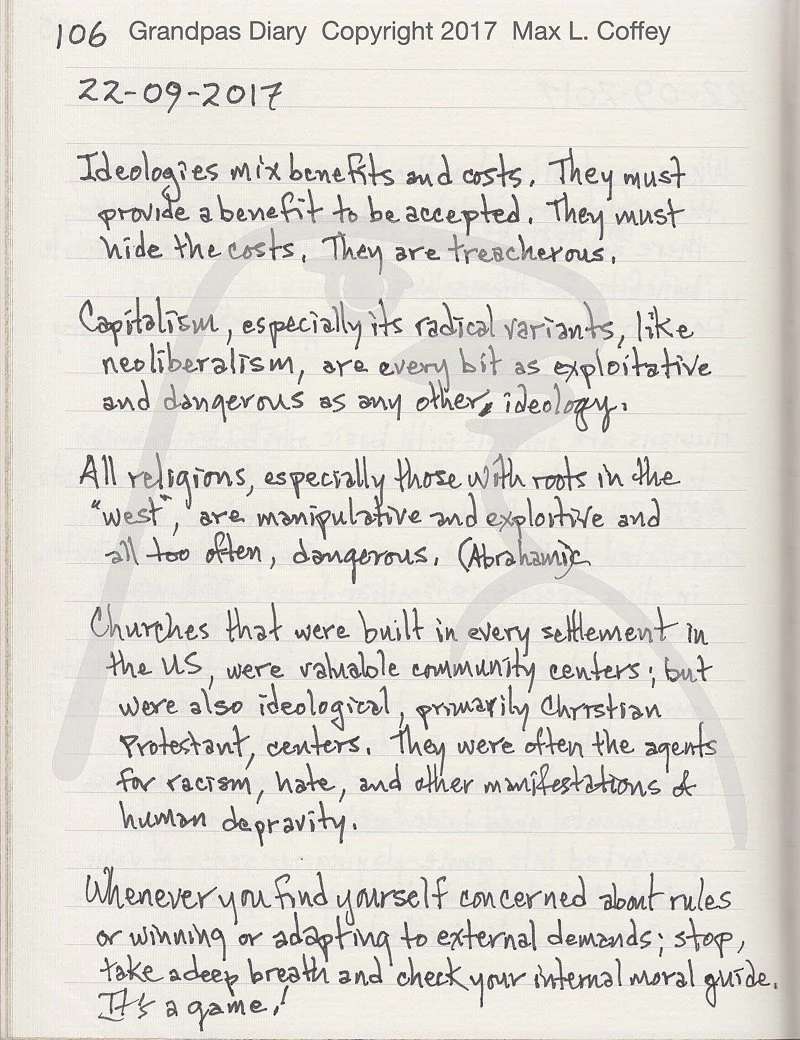 106 Grandpas Diary Copyright 2017 Max L. Coffey
22-09-2017
Ideologies mix benefits and costs. They must
provide a benefit to be accepted. They must
hide the costs. They are treacherous.
Capitalism, especially its radical variants, like
neoliberalism, are every bit as exploitative
and dangerous as any other, ideology.
All religions, especially those with roots in the
"west", are manipulative and exploitive and
all too often, dangerous. (Abrahamic
Churches that were built in every settlement in
the US, were valuable community centers; but
were also ideological, primarily Christian
Protestant, centers. They were often the agents
for racism, hate, and other manifestations of
human depravity.
Whenever you find yourself concerned about rules
or winning or adapting to external demands; stop,
take a deep breath and check your internal moral guide.
It's a game!